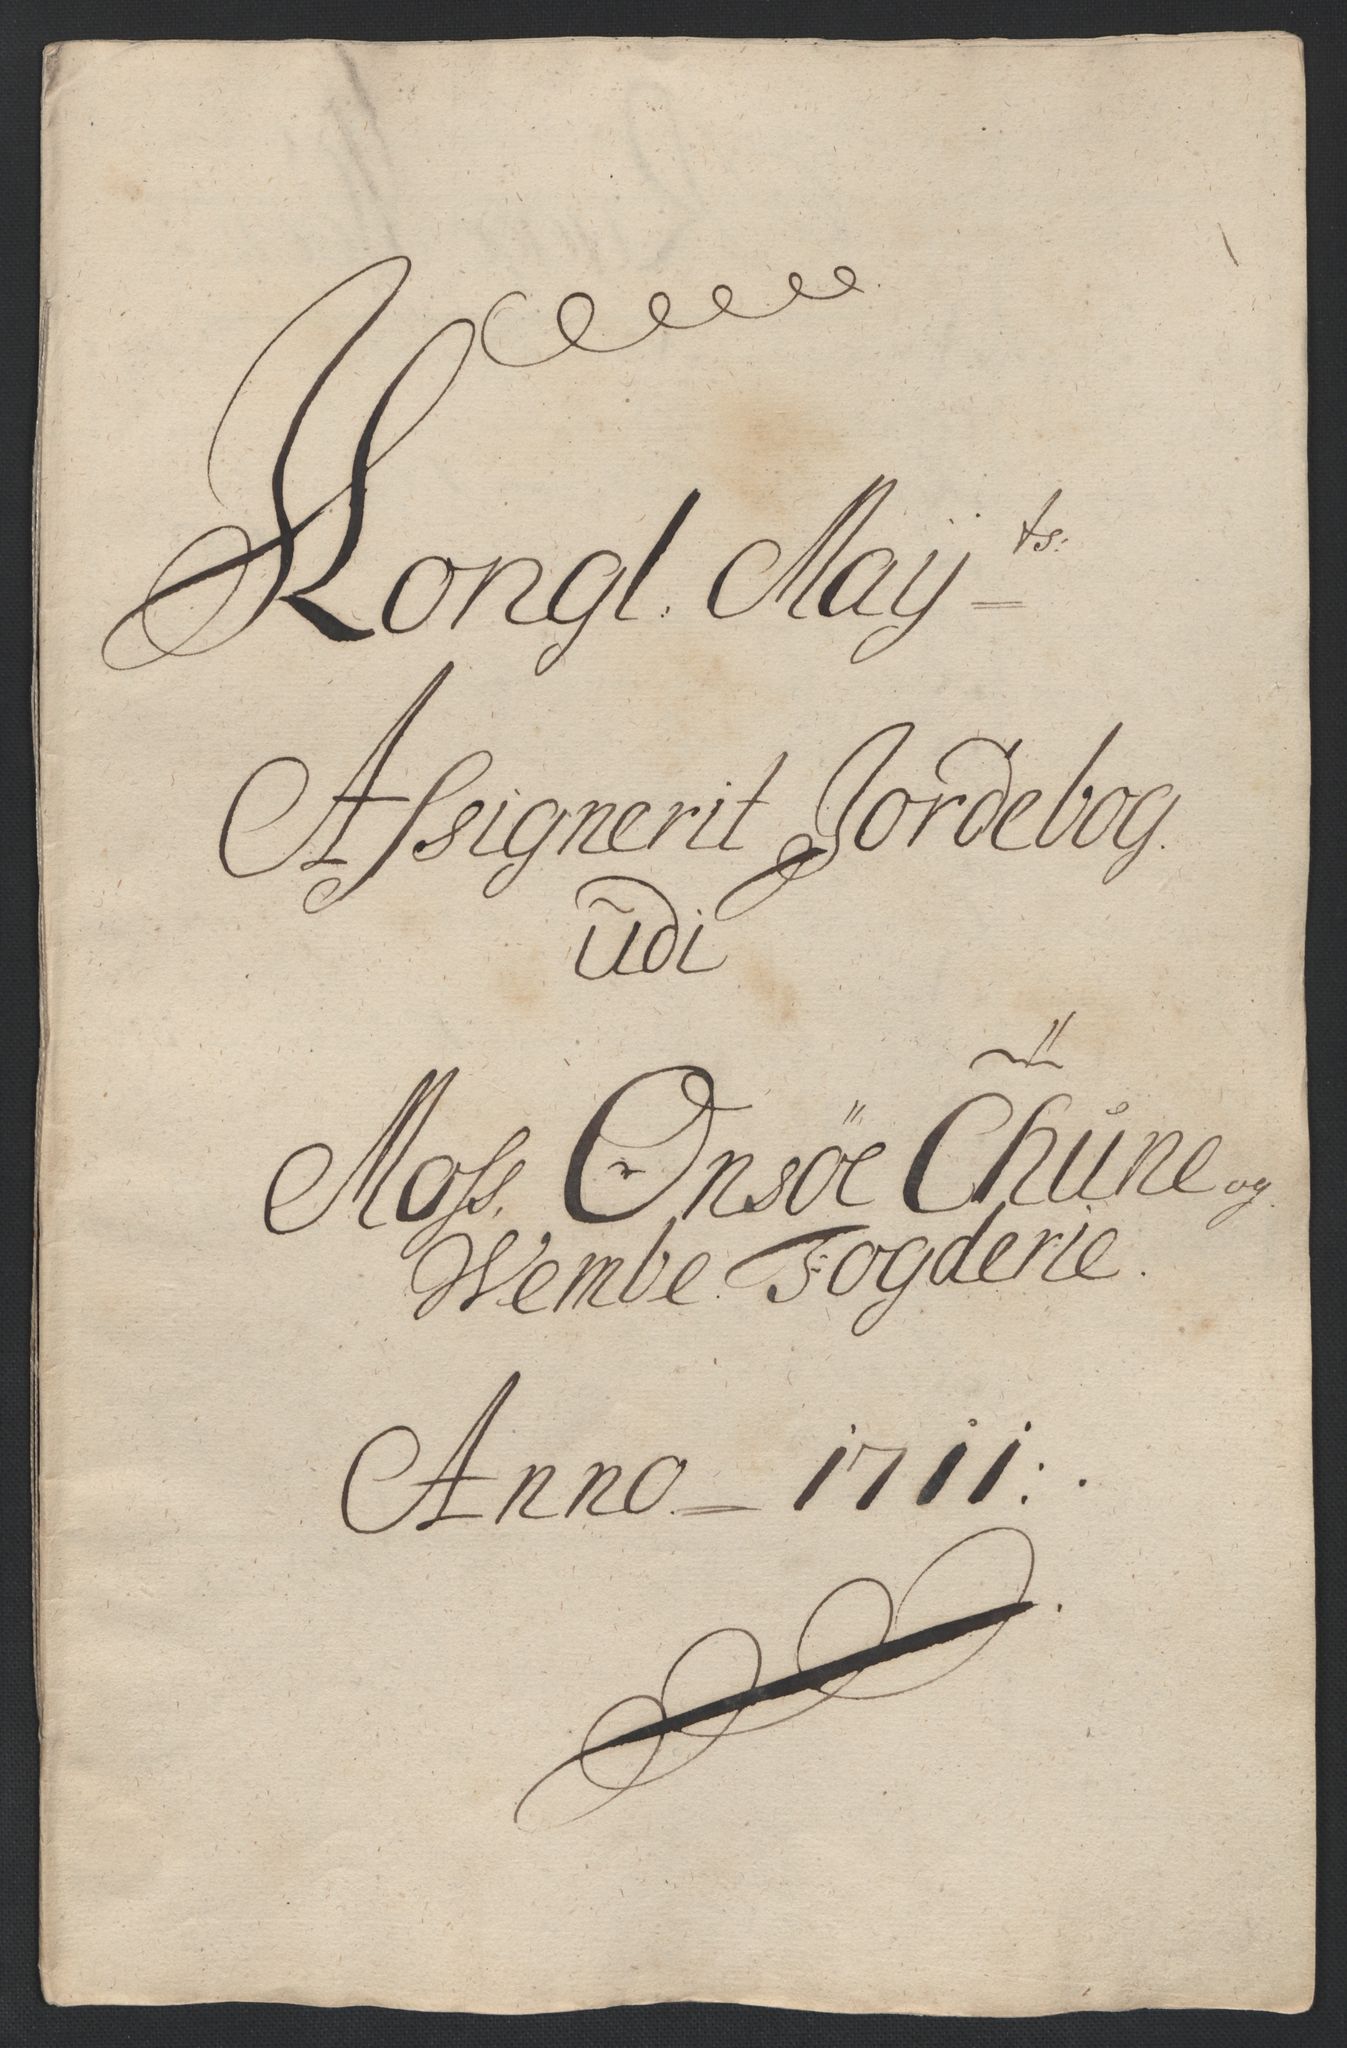 Kongl. Maÿ ts:
Assignerit Jordebog.
Udi
Moss, Onsöe Thune og
Wembe Fogderie.
Anno - 1711:.